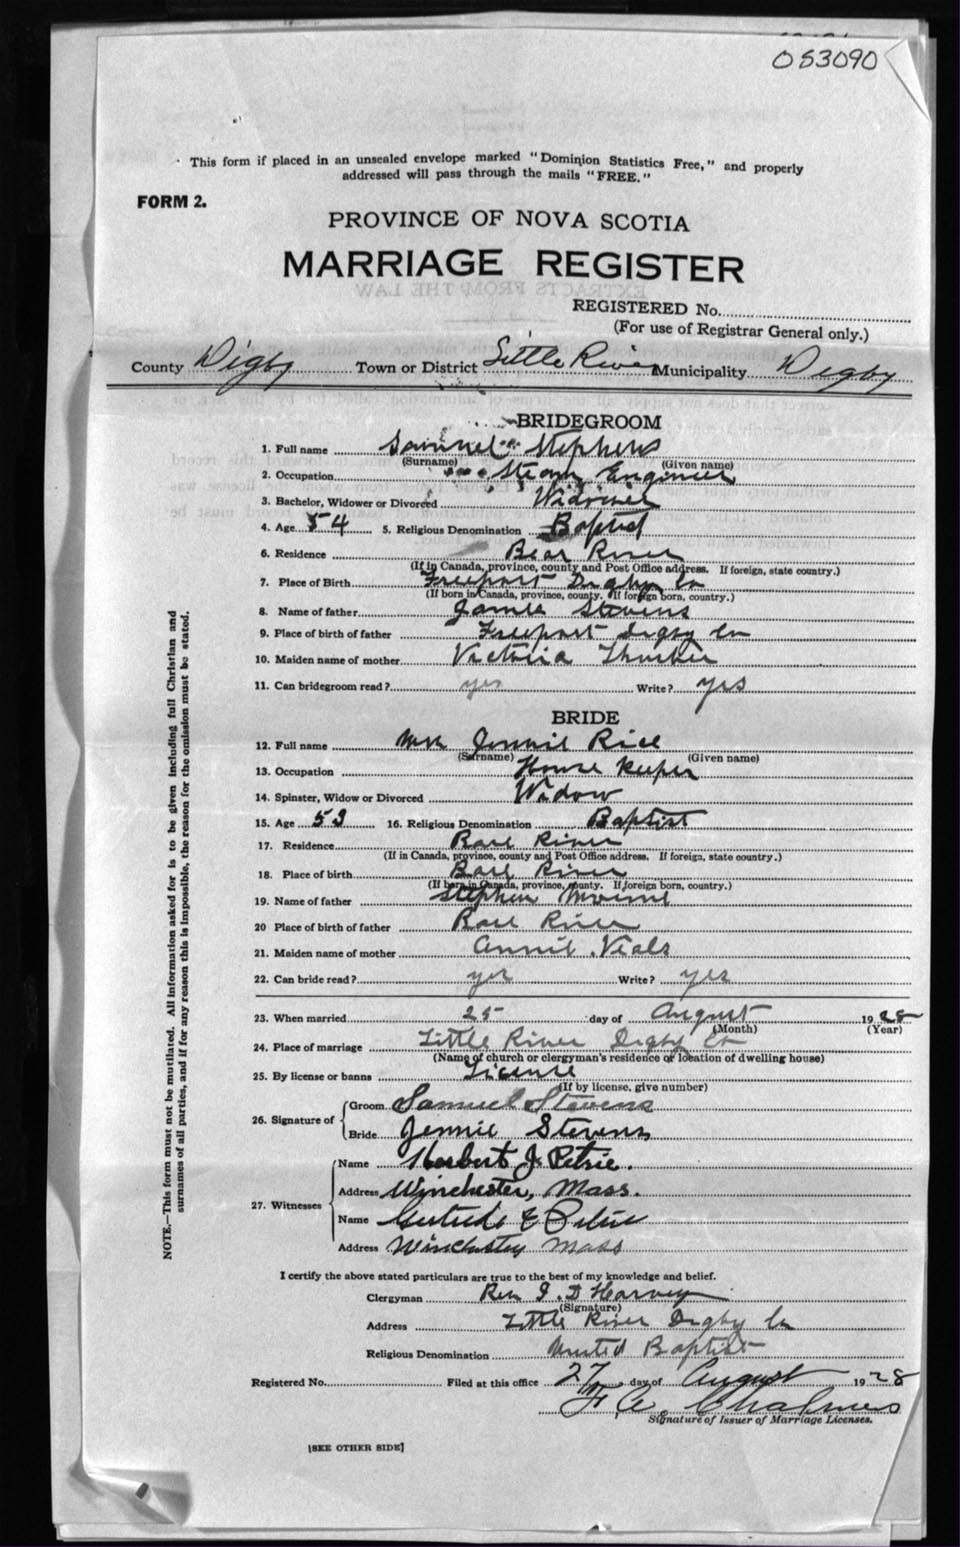 053090
This form if placed in an unsealed envelope marked "Dominion Statistics Free," and properly
addressed will pass through the mails "FREE."
FORM 2.
PROVINCE OF NOVA SCOTIA
MARRIAGE REGISTER
REGISTERED No.
(For use of Registrar General only.)
County Digby Town or District Little River Municipality Digby
BRIDEGROOM
1. Full name Samuel Stephens
(Surname) (Given name)
2. Occupation Steam Engineer
3. Bachelor, Widower or Divorced Widower
4. Age 54 5. Religious Denomination Baptist
6. Residence Bear River
(If in Canada, province, county and Post Office address. If foreign, state country.)
7. Place of Birth Freeport Digby Co
(If born in Canada, province, county. If foreign born, country.)
8. Name of father James Stevens
9. Place of birth of father Freeport Digby Co
10. Maiden name of mother Victoria Thurber
11. Can bridegroom read? yes Write? yes
BRIDE
12. Full name Mrs Jennie Rice
(Surname) (Given name)
13. Occupation House Keeper
14. Spinster, Widow or Divorced Widow
15. Age 53 16. Religious Denomination Baptist
17. Residence Bear River
(If in Canada, province, county and Post Office address. If foreign, state country.)
18. Place of birth Bear River
(If born in Canada, province, county. If foreign born, country.)
19. Name of father Stephen
20 Place of birth of father Bear River
21. Maiden name of mother Annie
22. Can bride read? yes Write? yes
23. When married 25 day of August 1928
(Month) (Year)
24. Place of marriage Little River Digby Co
(Name of church or clergyman's residence or location of dwelling house)
25. By license or banns License
(If by license, give number)
26. Signature of Groom Samuel Stevens
Bride Jennie Stevens
27. Witnesses Name Herbert J. Petrie.
Address Winchester, Mass.
Name Gertrude E Petrie
Address Winchester Mass
I certify the above stated particulars are true to the best of my knowledge and belief.
Clergyman Rev J. D Harvey
(Signature)
Address Little River Digby Co
Religious Denomination United Baptist
Registered No. Filed at this office 27 day of August 1928
Chalmers
Signature of Issuer of Marriage Licenses.
[SEE OTHER SIDE]
NOTE.—This form must not be mutilated. All information asked for is to be given including full Christian and
surnames of all parties, and if for any reason this is impossible, the reason for the omission must be stated.